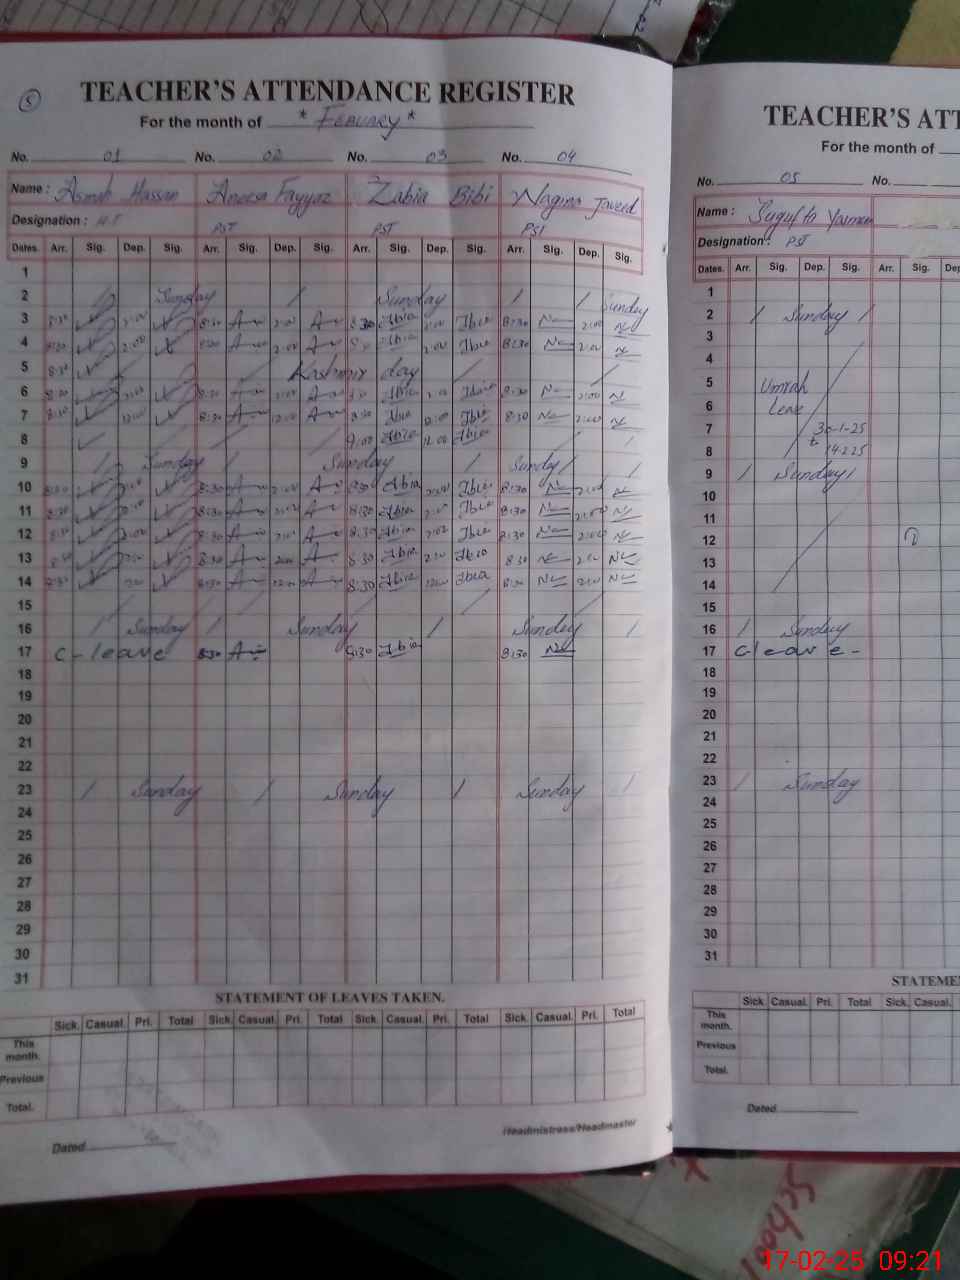 5
TEACHER'S ATTENDANCE REGISTER
For the month of * Febuary *
No. 01 No. 02 No. 03 No. 04
Name : Asmah Hassan Aneesa Fayyaz Zabia Bibi Nagina Javeed
Designation : H.T PST PST PST
Dates. Arr. Sig. Dep. Sig. Arr. Sig. Dep. Sig. Arr. Sig. Dep. Sig. Arr. Sig. Dep. Sig.
1
2 Sunday Sunday Sunday
3 8:30 2:00 8:30 2:00 8:30 2:00 8:30 2:00
4 8:30 2:00 8:30 2:00 2:00 8:30 2:00
5 8:30 Kashmir day
6 8:30 2:00 8:30 2:00 2:00 8:30 2:00
7 8:30 12:00 8:30 12:00 8:30 12:00 8:30
8 9:00 12:00
9 Sunday Sunday Sunday
10 8:30 2:00 8:30 2:00 8:30 2:00 8:30 2:00
11 8:30 2:00 8:30 2:00 8:30 2:00 8:30 2:00
12 8:30 2:00 8:30 2:00 8:30 2:00 8:30 2:00
13 8:30 2:00 8:30 2:00 8:30 2:00 8:30 2:00
14 8:30 8:30 12:00 8:30 12:00 8:30
15
16 Sunday Sunday Sunday
17 C-leave 8:30 8:30 8:30
18
19
20
21
22
23 Sunday Sunday Sunday
24
25
26
27
28
29
30
31
STATEMENT OF LEAVES TAKEN.
Sick. Casual. Pri. Total Sick. Casual. Pri. Total Sick. Casual. Pri. Total Sick. Casual. Pri. Total
This month.
Previous
Total.
Dated
Headmistress/Headmaster
TEACHER'S ATT
For the month of
No. 05 No.
Name : Sugufta Yasmeen
Designation : PST
Dates. Arr. Sig. Dep. Sig. Arr. Sig. Dep
1
2 Sunday
3
4
5 Umrah
6 Leave
7 30-1-25
8 14.2.25
9 Sunday
10
11
12
13
14
15
16 Sunday
17 C leave -
18
19
20
21
22
23 Sunday
24
25
26
27
28
29
30
31
STATEMEN
Sick. Casual. Pri. Total Sick. Casual.
This month.
Previous
Total.
Dated
School
17-02-25 09:21